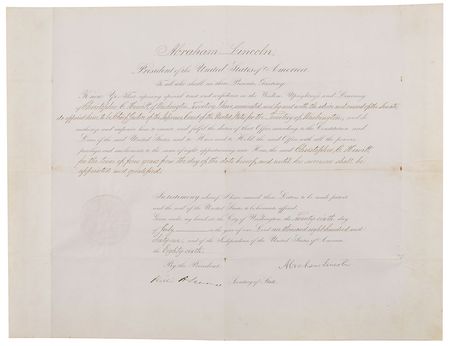 Abraham Lincoln,
President of the United States of America.
To all who shall see these Presents, Greeting:
Know Ye, That reposing special trust and confidence in the Wisdom, Uprightness and Learning
of Christopher C. Hewitt of Washington Territory, I have nominated, and by and with the advice and consent of the Senate
do appoint him to be Chief Justice of the Supreme Court of the United States for the Territory of Washington, and do
authorize and empower him to execute and fulfil the duties of that Office according to the Constitution and
Laws of the said United States and to Have and to Hold the said Office with all the powers,
privileges and emoluments to the same of right appertaining unto Him, the said Christopher C. Hewitt
for the term of four years from the day of the date hereof, and until his successor shall be
appointed and qualified.
In testimony whereof I have caused these Letters to be made patent
and the seal of the United States to be hereunto affixed.
Given under my hand at the City of Washington, the Twenty sixth day
of July in the year of our Lord one thousand eight hundred and
Sixty one, and of the Independence of the United States of America
the Eighty sixth.
By the President: Abraham Lincoln
William H. Seward Secretary of State.